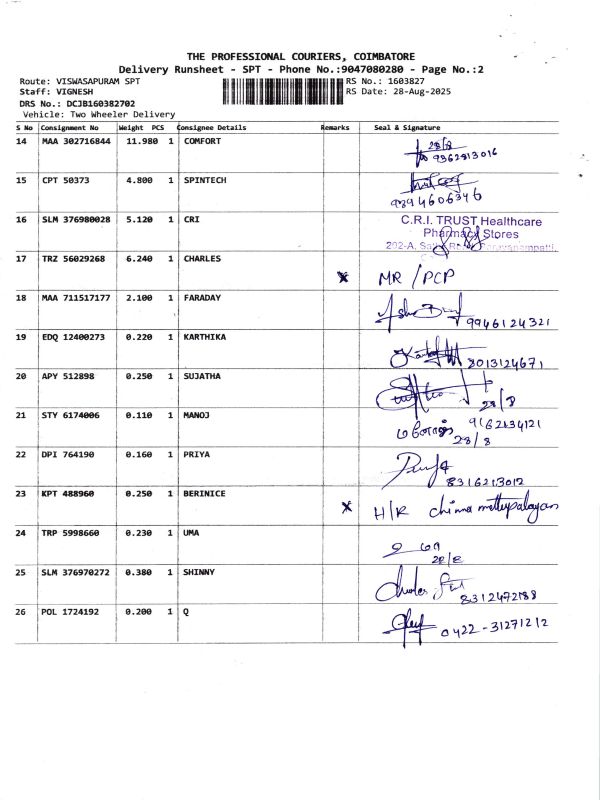 THE PROFESSIONAL COURIERS, COIMBATORE
Delivery Runsheet - SPT - Phone No.:9047080280 - Page No.:2
Route: VISWASAPURAM SPT RS No.: 1603827
Staff: VIGNESH RS Date: 28-Aug-2025
DRS No.: DCJB160382702
Vehicle: Two Wheeler Delivery
S No Consignment No Weight PCS Consignee Details Remarks Seal & Signature
14 MAA 302716844 11.980 1 COMFORT 28/8
9362813016
15 CPT 50373 4.800 1 SPINTECH
9894606346
16 SLM 376980028 5.120 1 CRI C.R.I. TRUST Healthcare
Pharmacy Stores
292-A,
17 TRZ 56029268 6.240 1 CHARLES x MR / PCP
18 MAA 711517177 2.100 1 FARADAY
9946124321
19 EDQ 12400273 0.220 1 KARTHIKA
8013124671
20 APY 512898 0.250 1 SUJATHA
28/8
21 STY 6174006 0.110 1 MANOJ 9162134121
28/8
22 DPI 764190 0.160 1 PRIYA
8316213012
23 KPT 488960 0.250 1 BERINICE x H/R chinna mettupalayam
24 TRP 5998660 0.230 1 UMA உமா
28/8
25 SLM 376970272 0.380 1 SHINNY
8312472188
26 POL 1724192 0.200 1 Q 0422-31271212